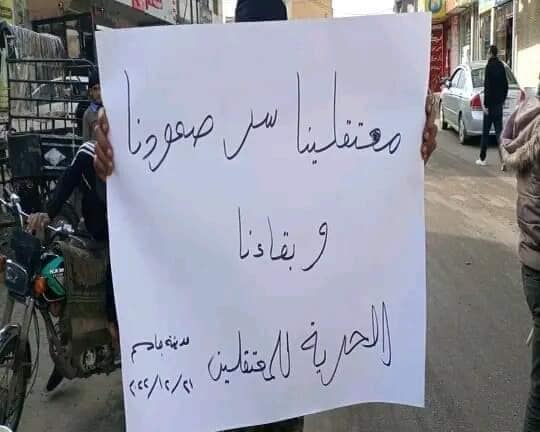 معتقلينا سر صمودنا
و بقاءنا
الحرية للمعتقلين
مدينة جاسم
٢٠٢٢/١٢/٢١